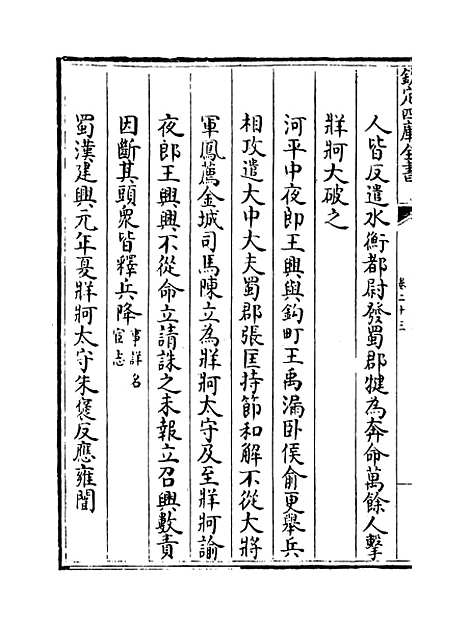 欽定四庫全書
卷二十三
人皆反遣水衡都尉發蜀郡犍為奔命萬餘人擊
牂牁大破之
河平中夜郎王興與鈎町王禹漏卧侯俞更舉兵
相攻遣大中大夫蜀郡張匡持節和解不從大將
軍鳳薦金城司馬陳立為牂牁太守及至牂牁諭
夜郎王興興不從命立請誅之未報立召興數責
因斷其頭衆皆釋兵降事詳名宦志
蜀漢建興元年夏牂牁太守朱褒反應雍闓